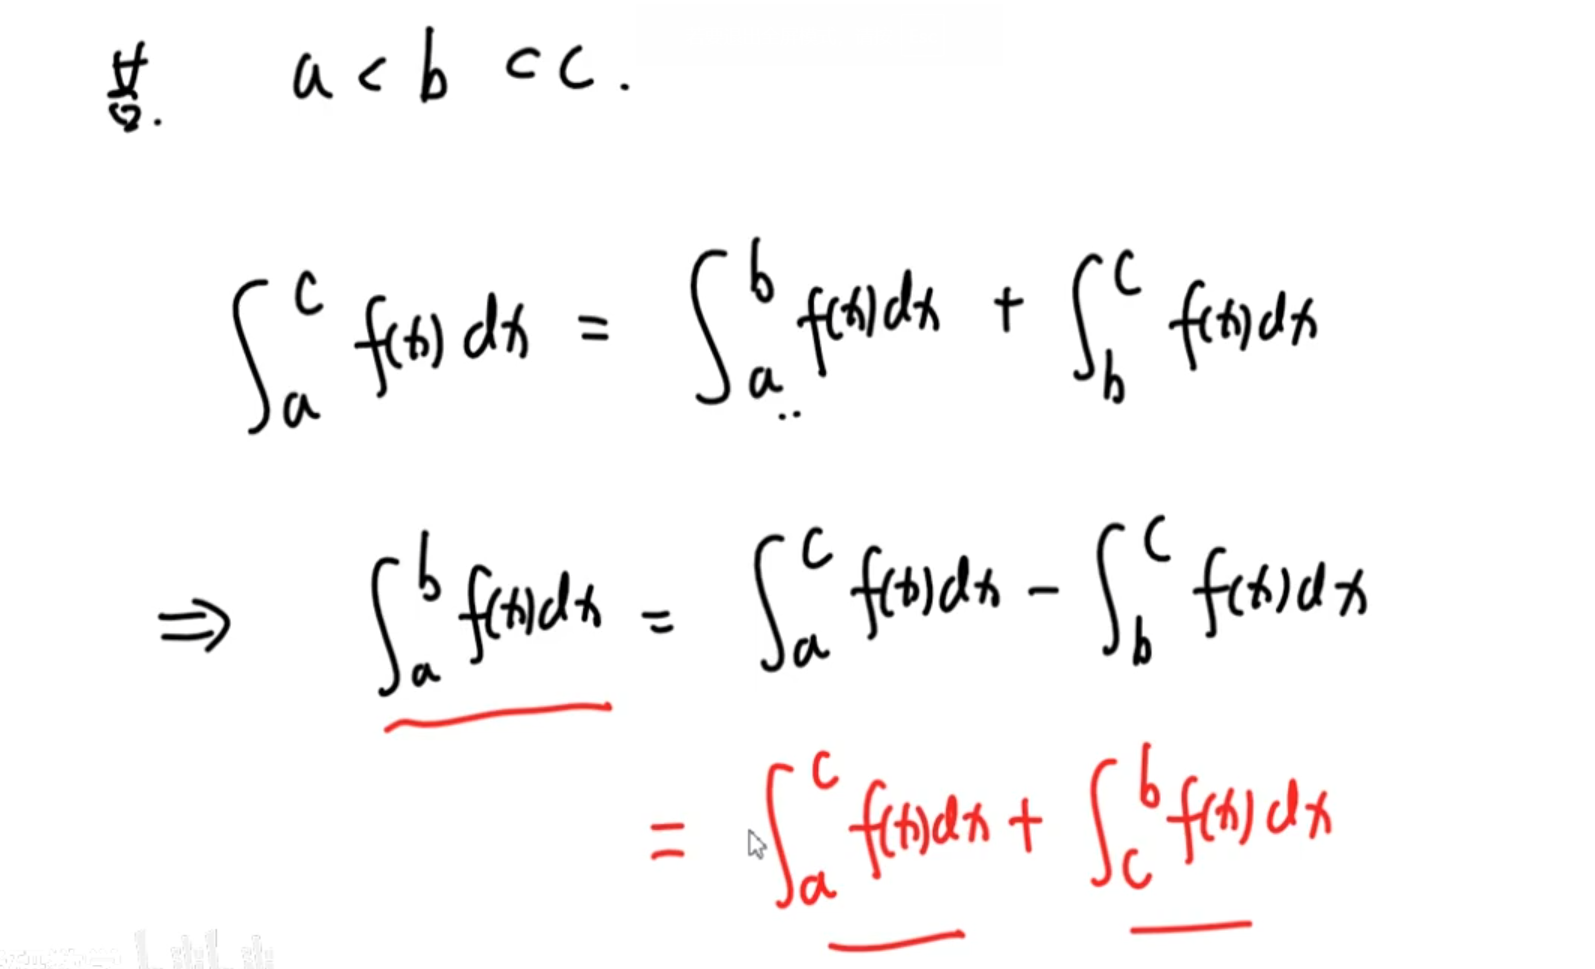 a < b < c .
∫_a^c f(x) dx = ∫_a^b f(x) dx + ∫_b^c f(x) dx
⇒ ∫_a^b f(x) dx = ∫_a^c f(x) dx - ∫_b^c f(x) dx
= ∫_a^c f(x) dx + ∫_c^b f(x) dx